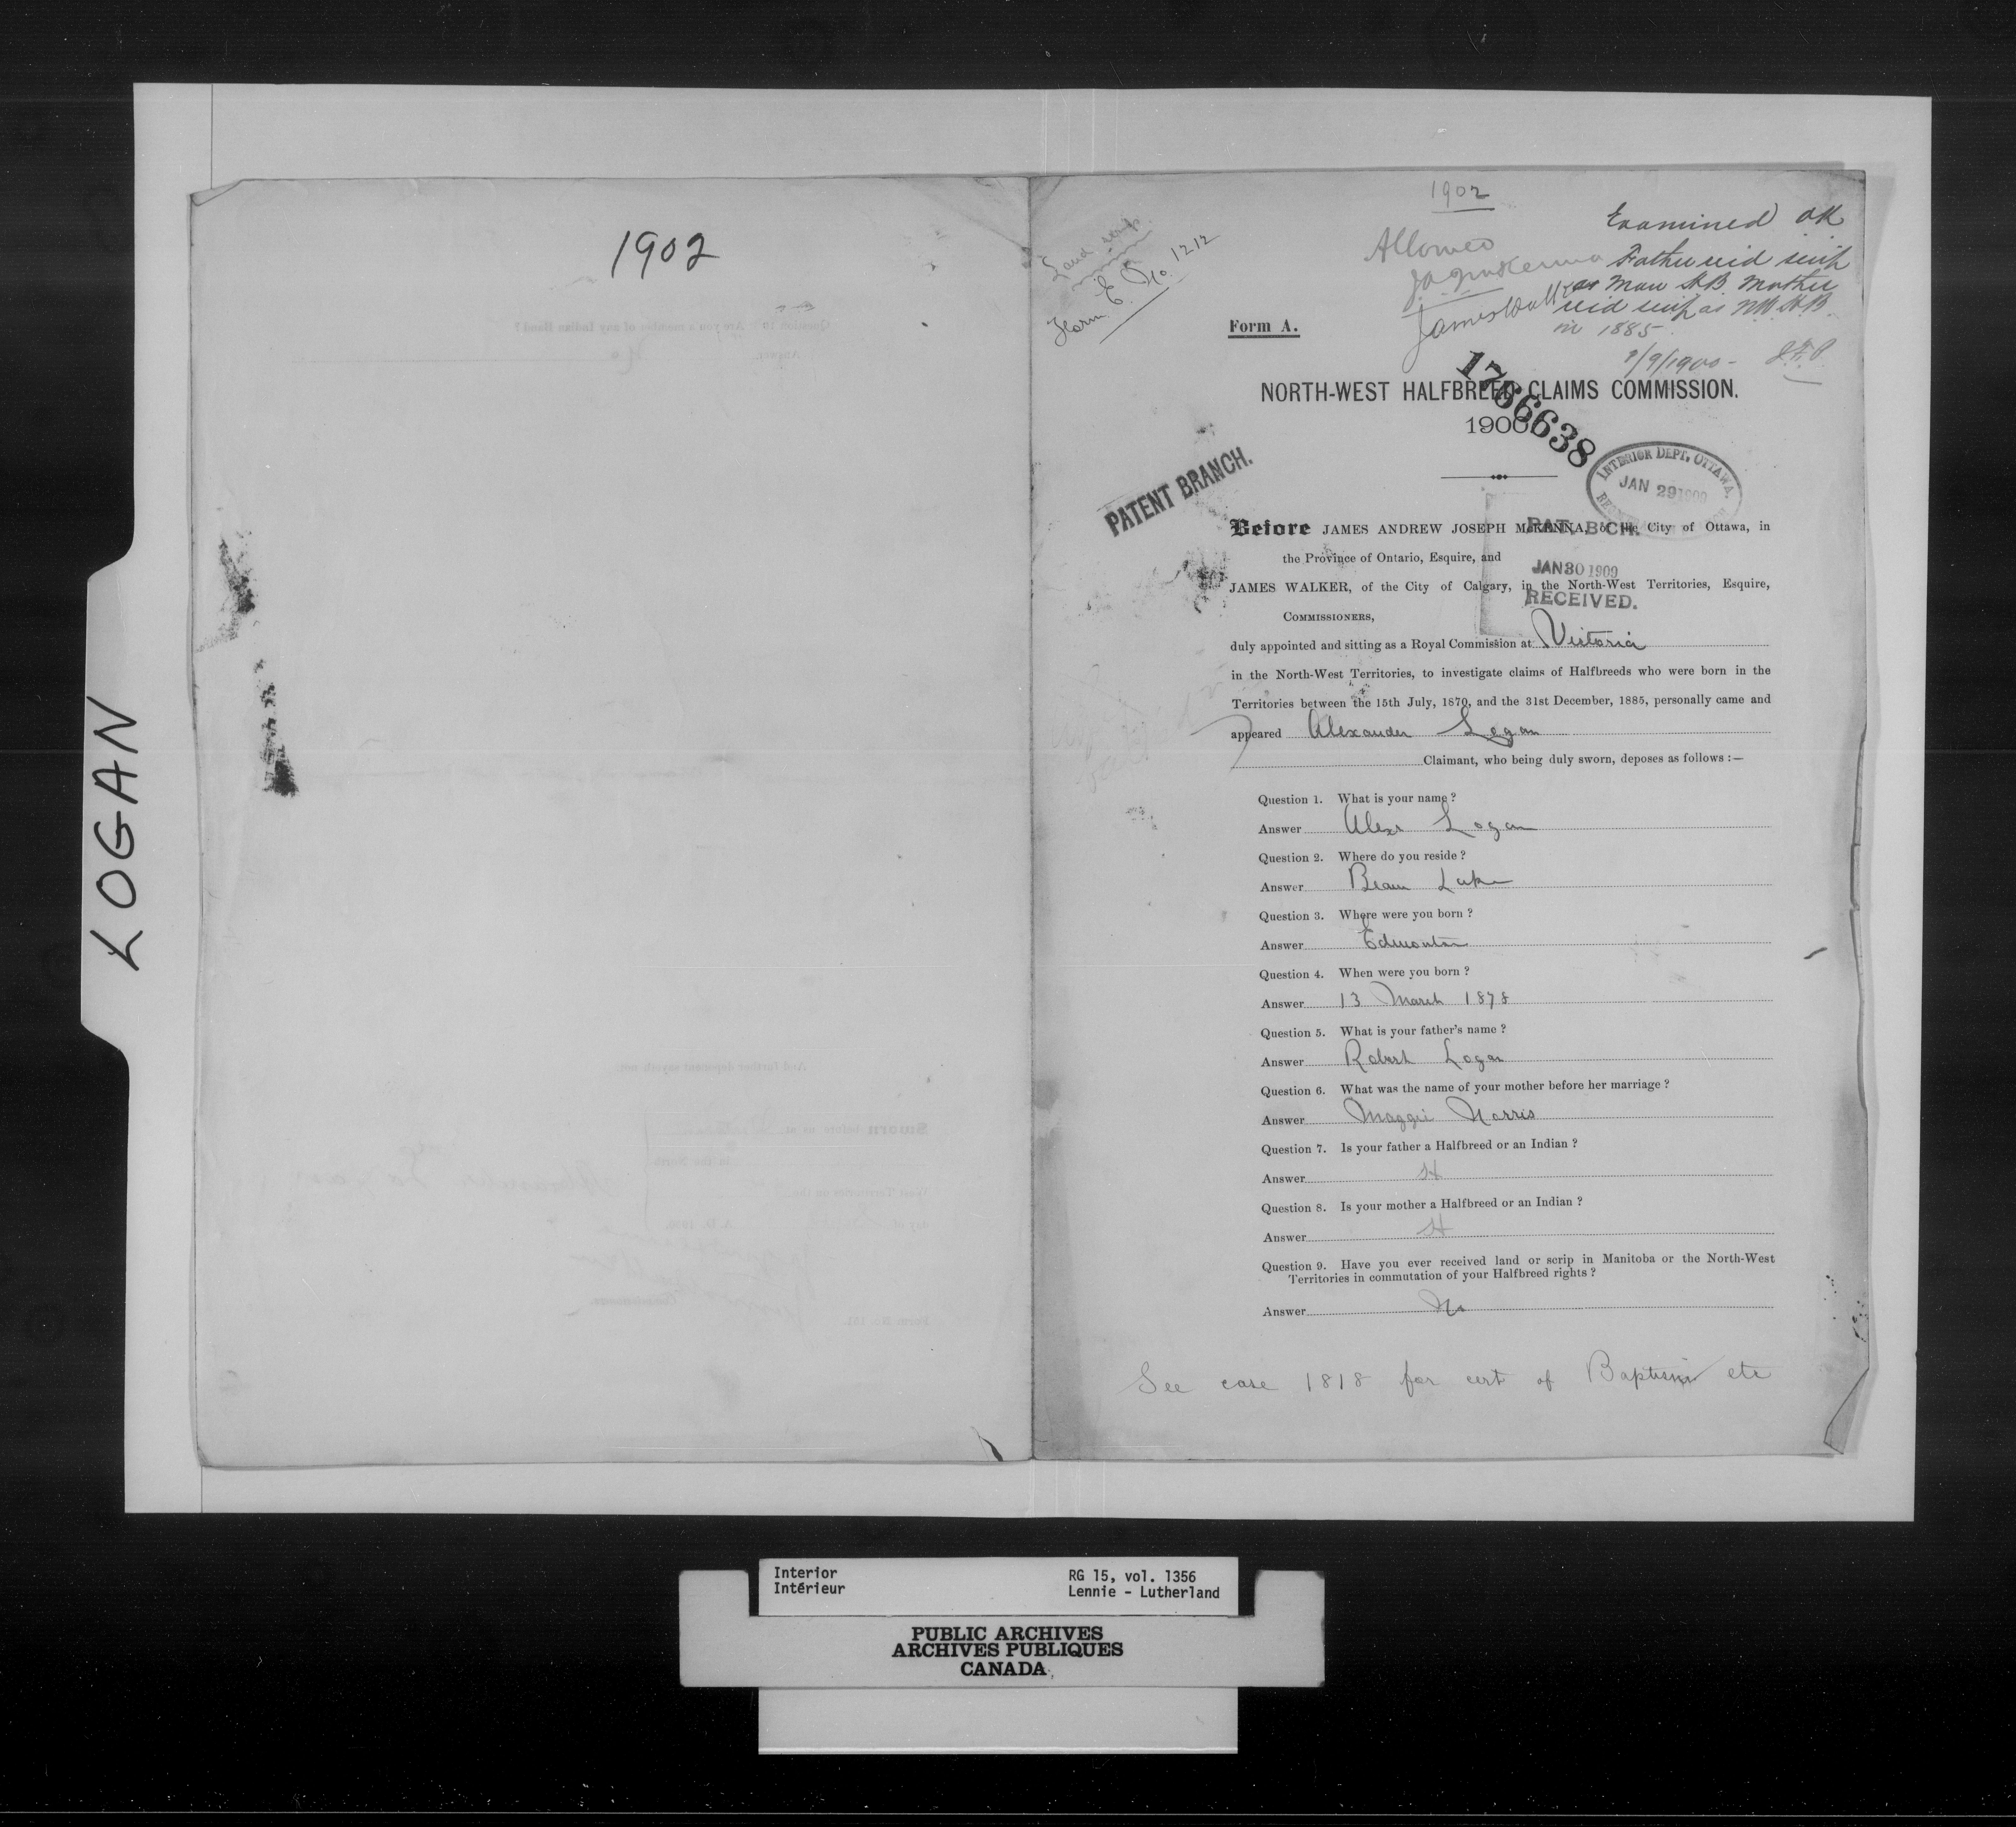 LOGAN
1902
1902
Land scrip
Form E. No. 1212
Allowed
JAJ McKenna
James Walker
Examined OK
Father recd scrip
as Man HB Mother
recd scrip as NW HB
in 1885
1/9/1900 -
Form A.
1766638
NORTH-WEST HALFBREED CLAIMS COMMISSION.
1900
PATENT BRANCH.
INTERIOR DEPT. OTTAWA.
JAN 29 1909
Before JAMES ANDREW JOSEPH McKENNA, of the City of Ottawa, in
PAT. BCH.
the Province of Ontario, Esquire, and
JAN 30 1909
JAMES WALKER, of the City of Calgary, in the North-West Territories, Esquire,
RECEIVED.
COMMISSIONERS,
duly appointed and sitting as a Royal Commission at Victoria
in the North-West Territories, to investigate claims of Halfbreeds who were born in the
Territories between the 15th July, 1870, and the 31st December, 1885, personally came and
appeared Alexander Logan
Claimant, who being duly sworn, deposes as follows :—
Question 1. What is your name ?
Answer Alexr Logan
Question 2. Where do you reside ?
Answer Beaver Lake
Question 3. Where were you born ?
Answer Edmonton
Question 4. When were you born ?
Answer 13 March 1878
Question 5. What is your father's name ?
Answer Robert Logan
Question 6. What was the name of your mother before her marriage ?
Answer Maggie Norris
Question 7. Is your father a Halfbreed or an Indian ?
Answer H
Question 8. Is your mother a Halfbreed or an Indian ?
Answer H
Question 9. Have you ever received land or scrip in Manitoba or the North-West
Territories in commutation of your Halfbreed rights ?
Answer No
See case 1818 for cert of Baptism etc
Interior
Intérieur
RG 15, vol. 1356
Lennie - Lutherland
PUBLIC ARCHIVES
ARCHIVES PUBLIQUES
CANADA